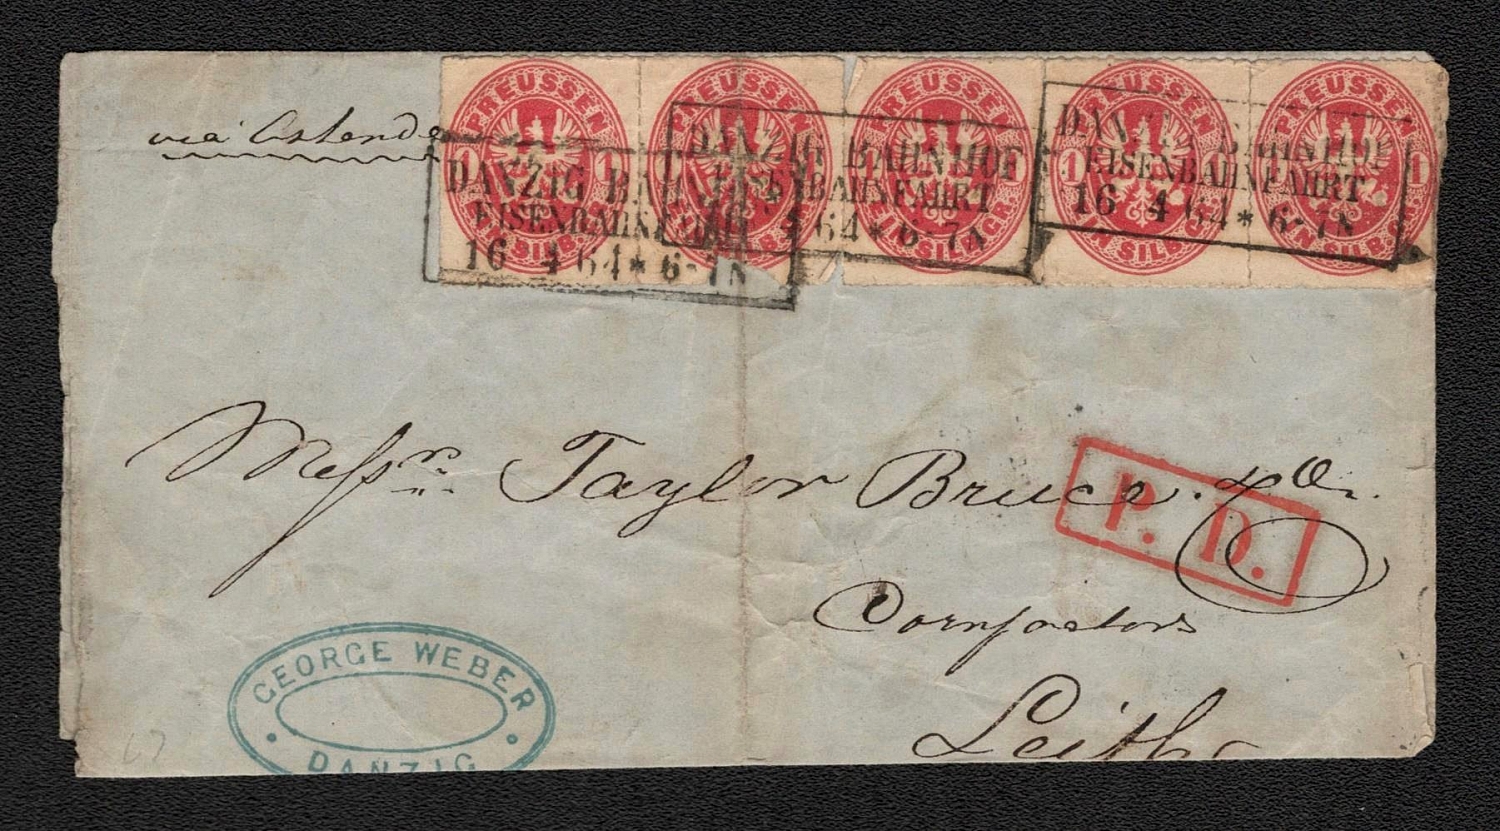 via Ostende
PREUSSEN PREUSSEN PREUSSEN PREUSSEN PREUSSEN
1 1 1 1 1
EIN SILB. GR.
DANZIG BAHNHOF
EISENBAHNFAHRT
16 4 64 * 6-7N
DANZIG BAHNHOF
EISENBAHNFAHRT
16 4 64 * 6-7N
DANZIG BAHNHOF
EISENBAHNFAHRT
16 4 64 * 6-7N
Messrs. Taylor Bruce & Co.
P. D.
Cornfactors
Leith
GEORGE WEBER
DANZIG
67